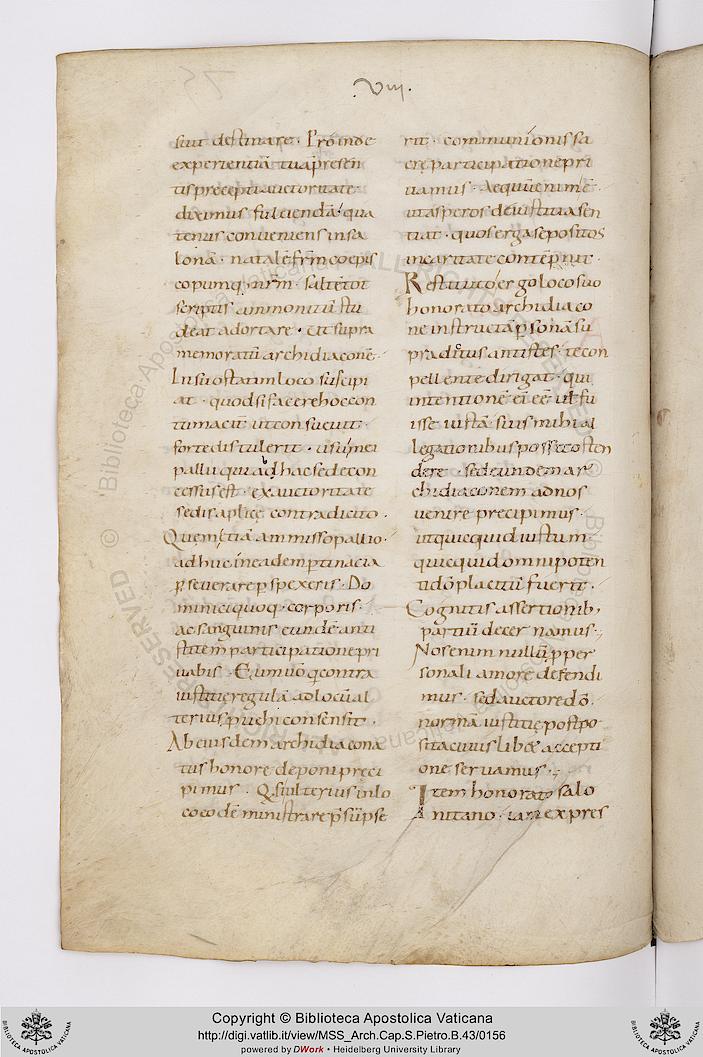 .VIII.
siuit destinare · Proinde
experientiā tuā presen
tis precepti auctoritate
diximus fulciendā · qua
tenus conueniens in sa
lonā · natalē fr̄m coepis
copumq; nr̄m · saltē tot
scriptis ammonitū stu
deat adortare · ut supra
memoratū archidiaconē
In suo statim loco suscipi
at · quod si facere hoc con
tumacit ut consueuit
forte distulerit · usū ei
pallii qui ab hac sede con
cessus est · ex auctoritate
sedis aplicę contradicito ·
Quem etiā ammisso pallio ·
adhuc in eadem ptinacia
pseuerare pspexeris · Do
minici quoq · corporis ·
ac sanguinis eundē anti
stitem participatione pri
uabis · Eum uō q contra
iustitię regulā ad locū al
terius puehi consensit ·
Ab eiusdem archidiacona
tus honore deponi preci
pimus · Qsi ulterius in lo
co eodē ministrare psūpse
rit · communionis sa
cre participatione pri
uamus · Aequū enim ē
ut asperos de iustitia sen
tiat · quos erga se positos
in caritate contēpnit ·
Restituto ergo loco suo
honorato archidiaco
ne instructā psonā su
pradictus antistes · te con
pellente dirigat · qui
intentionē ei eē uł fu
isse iustā suis mihi al
legationibus posse osten
dere · sed eundem ar
chidiaconem ad nos
uenire precipimus ·
ut quicquid iustum ·
quicquid omnipoten
ti dō placitū fuerit ·
Cognitis assertionib;
partiū decernamus ·
Nos enim nullū p per
sonali amore defendi
mus · sed auctore dō ·
normā iustitię postpo
sita cuiuslibet accepti
one seruamus ·
Item honorato salo
nitano · iam ex pres
© Biblioteca Apostolica Vaticana ALL RIGHTS RESERVED
Copyright © Biblioteca Apostolica Vaticana
http://digi.vatlib.it/view/MSS_Arch.Cap.S.Pietro.B.43/0156
powered by DWork • Heidelberg University Library
BIBLIOTECA APOSTOLICA VATICANA
BIBLIOTECA APOSTOLICA VATICANA